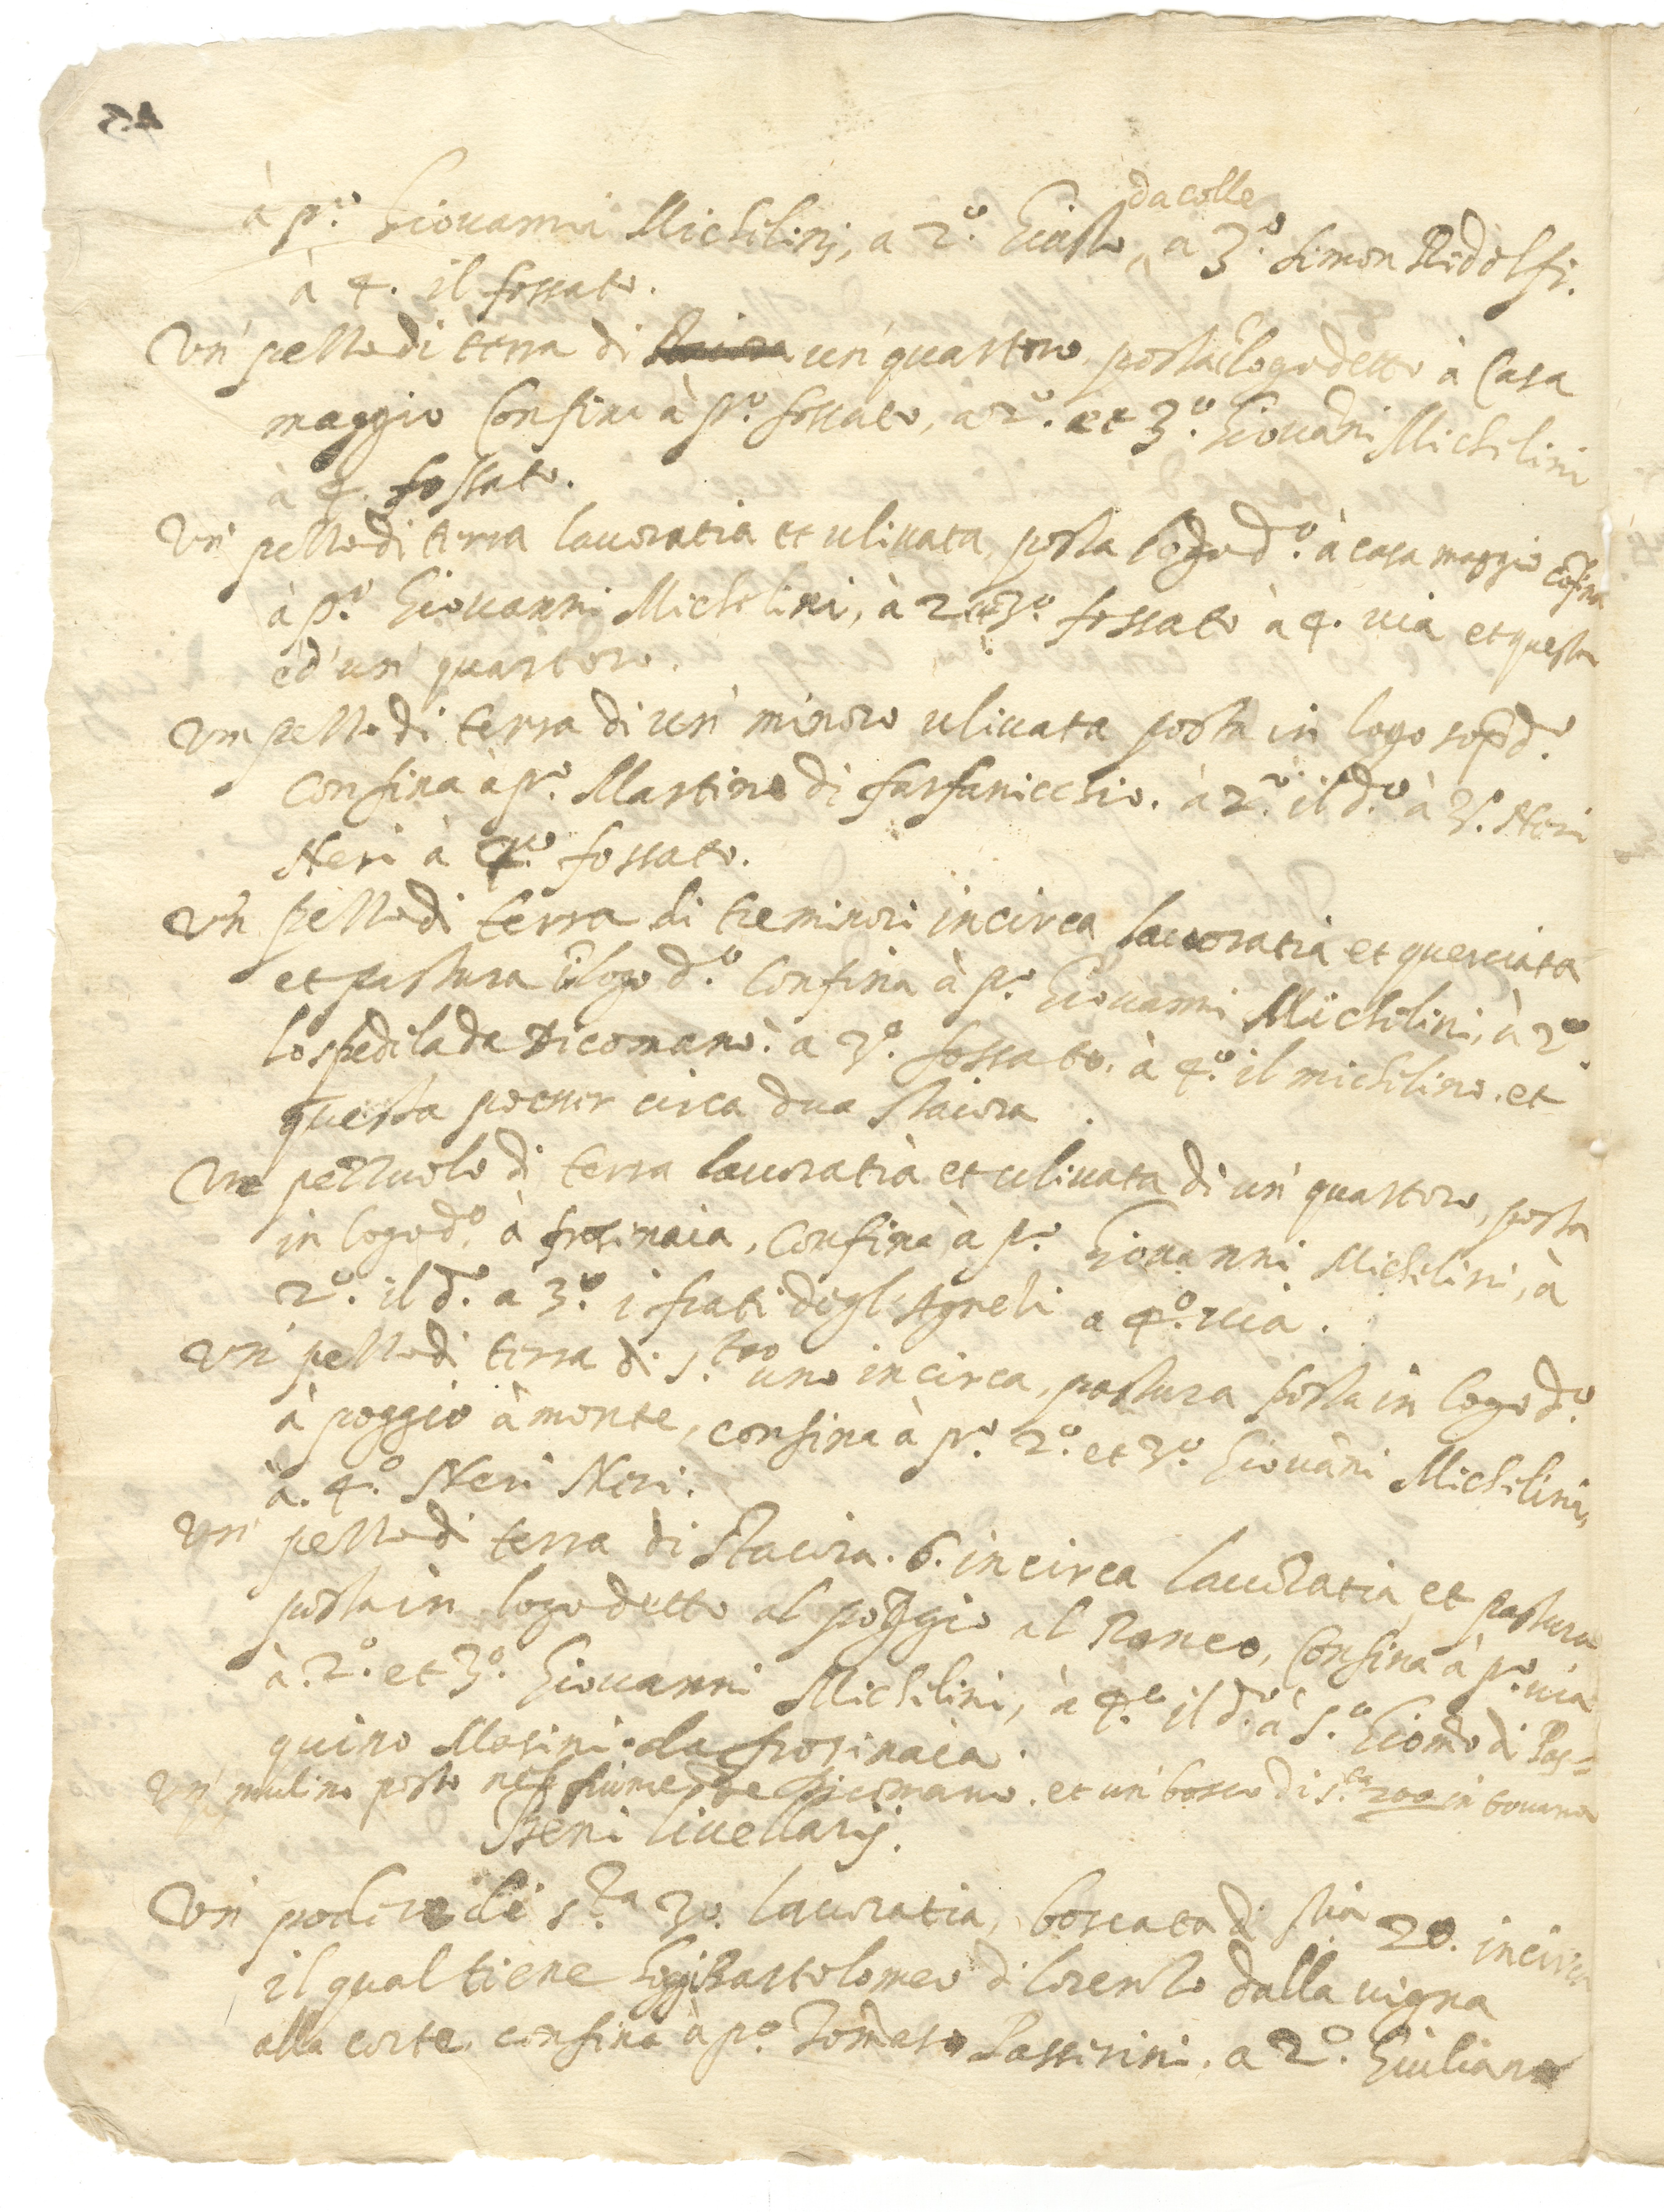 à p.º Giouanni Michelinj, a 2.º Giusto da colle, a 3.º Simon Ridolfi.
à 4. il fossato.
Vn' pezzo di terra di un' quartoro posta ĩ logo detto à Casa
maggio Confina à p.º fossato, a 2.º et 3.º Giouãni Michelini
à 4. fossato.
Vn' pezzo di terra lauoratia et uliuata, posta logo d.º à casa maggio cõfina
à p.º Giouanni Michelini, à 2 et 3.º fossato à 4. uia et questa
è d'un' quartoro.
Vm pezzo di terra di un' minoro uliuata posta in logo sop.d.º
Confina à p.º Martino di farfanicchio. à 2.º il d.º à 3.º Neri
Neri à 4.º fossato.
Vn pezzo di terra di tre minori incirca lauoratia et querciata
et pastura ĩ logo d.º Confina à p.º Giouanni Michelini, à 2.º
lo spedila da Dicomano. à 3.º fossato. à 4.º il michelino. et
questa po esser circa dua staiora.
Vn pezzuolo di terra lauoratia et uliuata di un' quartoro, posta
in logo d.º à frosinaia, Confina à p.º Giouanni Michelini, à
2.º il d.º a 3.º i frati degl' Agneli a 4.º uia.
Vn' pezzo di terra di s.toro uno incirca, pastura posta in logo d.º
à poggio à monte, confina à p.º 2.º et 3.º Giouãni Michelini,
à. 4.º Neri Neri.
Vn' pezzo di terra di Staiora. 6. incirca lauoratia et pastura
posta in logo detto al poggio al Roneo, Confina à p.º uia
à. 2.º et 3.º Giouanni Michelini, à 4.º il d.º à 5.º Giomo di Pas=
quino Masini da frosinaia.
Vn' mulino posto nel fiume de Dicomano. et un' bosco di s.ra 200 in
Beni liuellarij.
Vn' podere di s.ra 30. lauoratia, boscata di stia 20. incirca
il qual tiene hoggi Bartolomeo di Lorenzo dalla uigna
alla corte confina à p.º Tomaso Passerini. a 2.º Giuliano